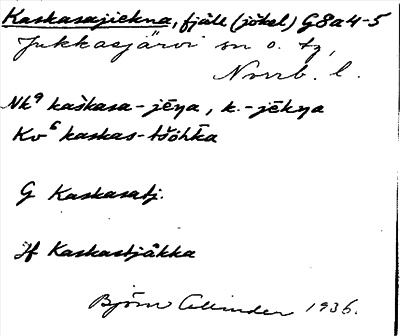 Kaskasajiekna, fjäll (jökel) G8a4-5
Jukkasjärvi sn o. tg,
Norrb. l.
Nk⁹ kaškasa-jēŋa, k.-jēkŋa
Kv⁶ kaskas-tšohkka
G Kaskasatj.
Jf Kaskastjåkka
Björn Collinder 1936.